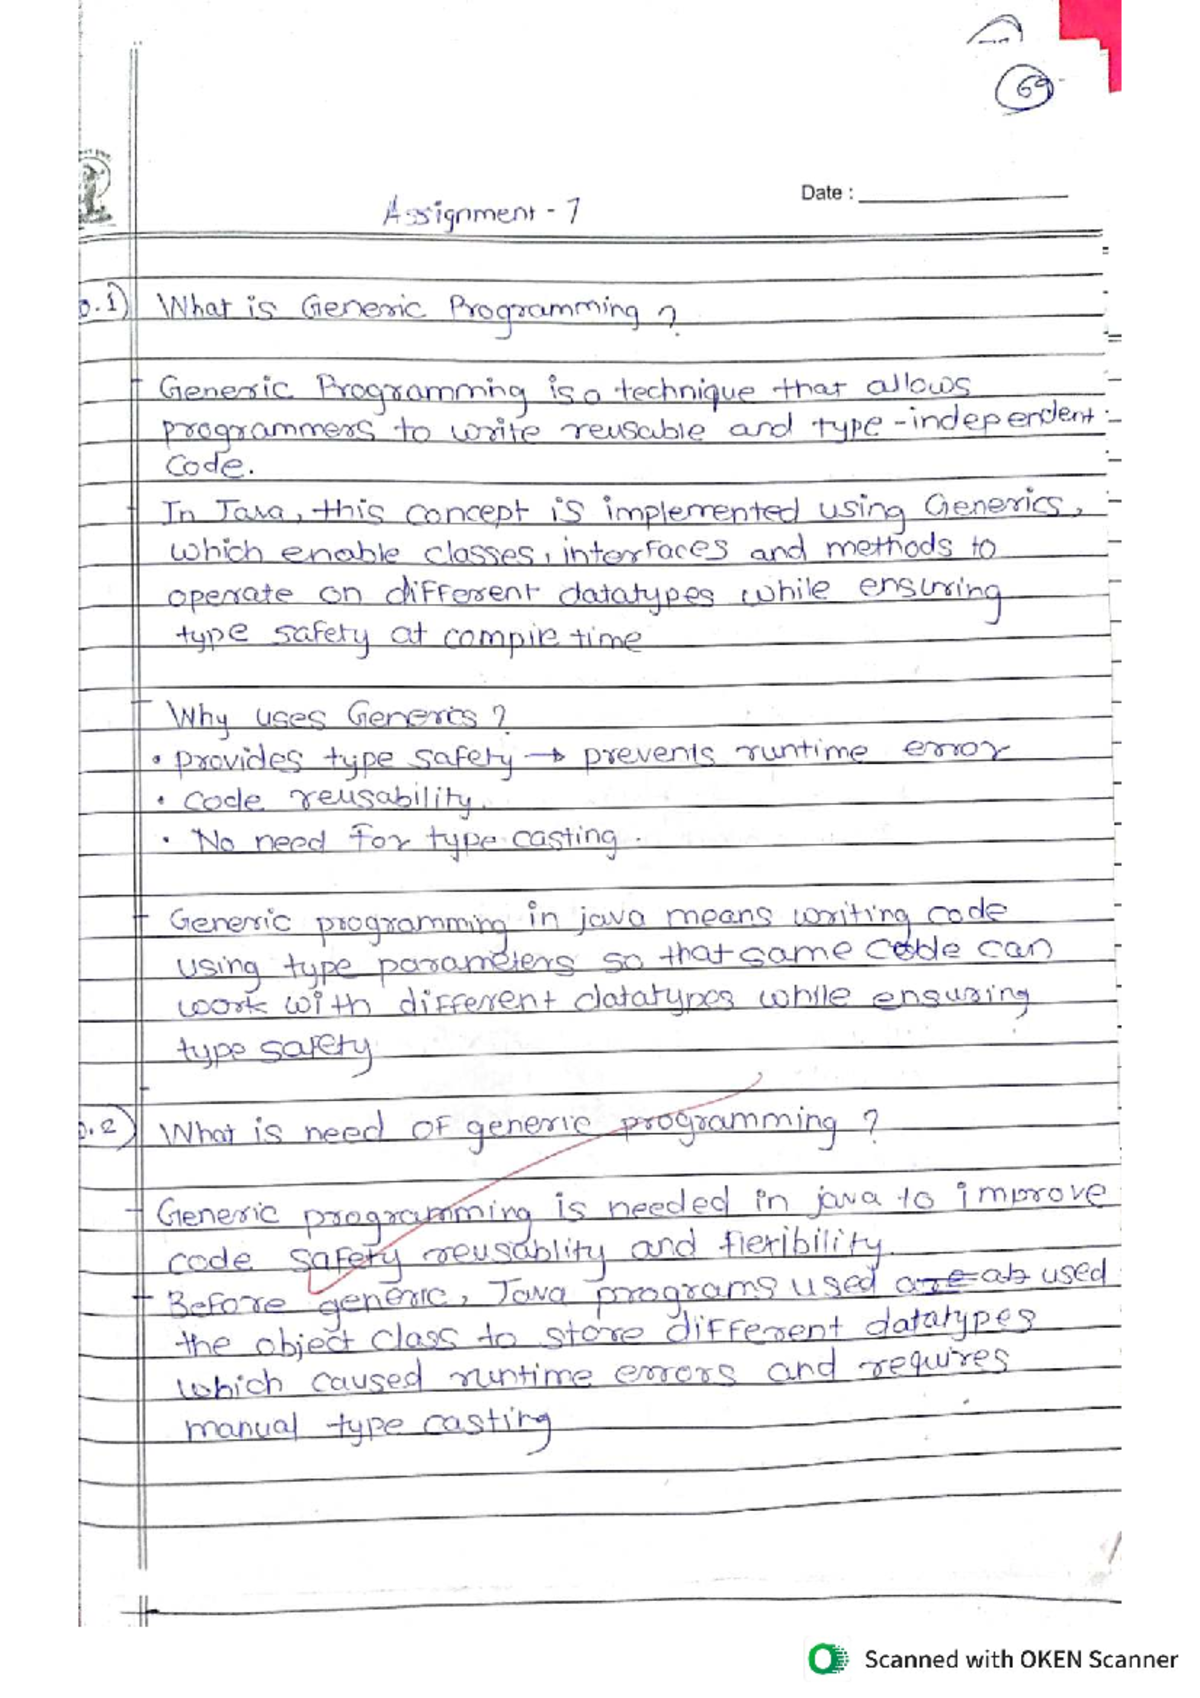 69
Date :
Assignment - 1
Q.1) What is Generic Programming ?
Generic Programming is a technique that allows
programmers to write reusable and type-independent
code.
In Java, this concept is implemented using Generics,
which enable classes, interfaces and methods to
operate on different datatypes while ensuring
type safety at compile time
Why uses Generics ?
• provides type safety → prevents runtime error
• code reusability.
• No need for type casting.
Generic programming in java means writing code
using type parameters so that same code can
work with different datatypes while ensuring
type safety
Q.2) What is need of generic programming ?
Generic programming is needed in java to improve
code safety reusablity and flexibility.
Before generic, Java programs used are used
the object class to store different datatypes
which caused runtime errors and requires
manual type casting
Scanned with OKEN Scanner